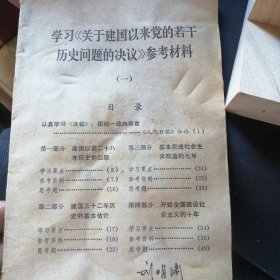 学习《关于建国以来党的若干
历史问题的决议》参考材料
(一)
目录
认真学习《决议》,团结一致向前看
《人民日报》社论(1)
第一部分 建国以前二十八
年历史的回顾
学习要点 (5)
参考资料 (7)
思考题 (16)
第二部分 建国三十二年历
史的基本估计
学习要点 (17)
参考资料 (18)
思考题 (23)
第三部分 基本完成社会主
义改造的七年
学习要点 (24)
参考资料 (25)
思考题
第四部分 开始全面建设社
会主义的十年
学习要点
参考资料
思考题 (49)